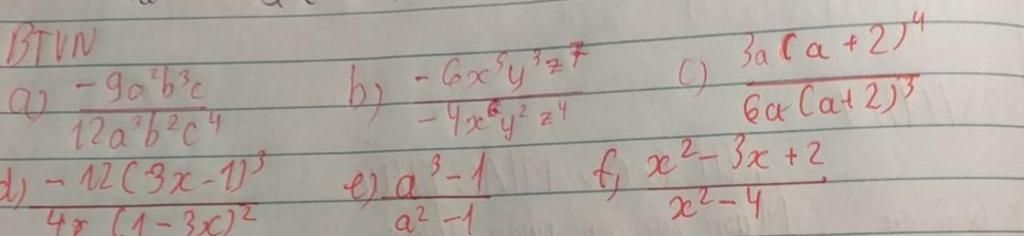 BTVN
a) \frac{-9a^2b^3c}{12a^3b^2c^4} b) \frac{-6x^5y^3z^7}{-4x^6y^2z^4} c) \frac{3a(a+2)^4}{6a(a+2)^3}
d) \frac{-12(3x-1)^3}{4x(1-3x)^2} e) \frac{a^3-1}{a^2-1} f, \frac{x^2-3x+2}{x^2-4}